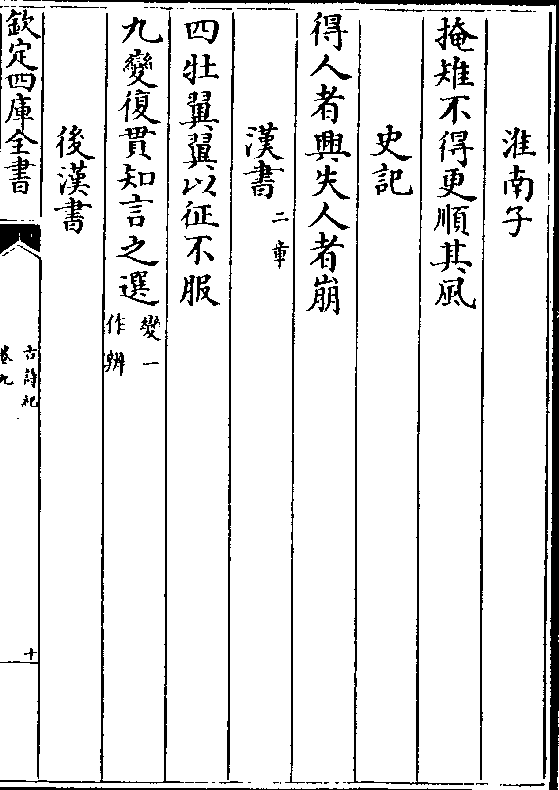 淮南子
掩雉不得更順其風
史記
得人者興失人者崩
漢書二章
四牡翼翼以征不服
九變復貫知言之選變一作辨
後漢書
欽定四庫全書
古詩紀
卷九
十